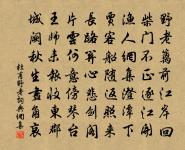 野老籬前江岸回
柴門不正逐江開
漁人網集澄潭下
賈客船隨返照來
長路關心悲劍閣
片雲何意傍琴臺
王師未報收東郡
城闕秋生畫角哀
杜甫野老詩詞典網集